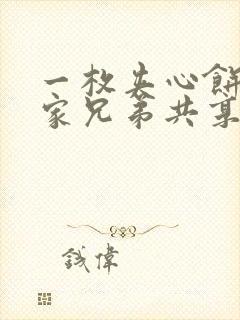 一枚夹心餅
家兄弟共享
錢偉